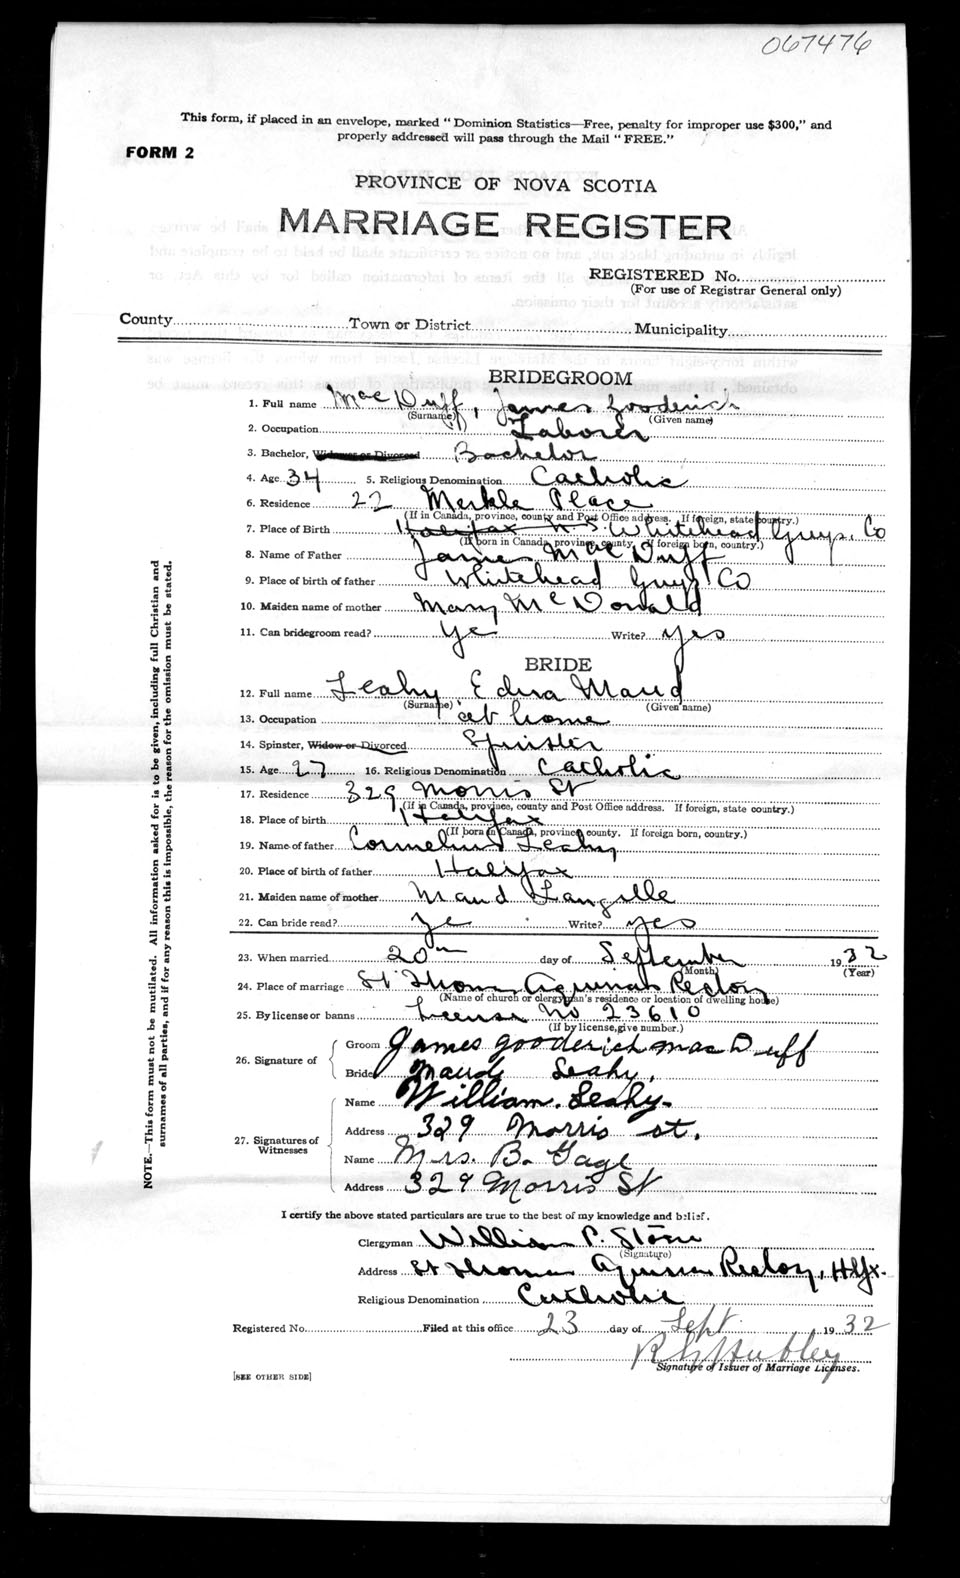 067476
This form, if placed in an envelope, marked “ Dominion Statistics—Free, penalty for improper use $300,” and
properly addressed will pass through the Mail “ FREE.”
FORM 2
PROVINCE OF NOVA SCOTIA
MARRIAGE REGISTER
REGISTERED No.
(For use of Registrar General only)
County Town or District Municipality
BRIDEGROOM
1. Full name MacDuff, James Gooderich
(Surname) (Given name)
2. Occupation Laborer
3. Bachelor, Widower or Divorced Bachelor
4. Age 34 5. Religious Denomination Catholic
6. Residence 22 Merkle Place
(If in Canada, province, county and Post Office address. If foreign, state country.)
7. Place of Birth Halifax N.S. Whitehead Guys. Co
(If born in Canada, province, county. If foreign born, country.)
8. Name of Father James MacDuff
9. Place of birth of father Whitehead Guys Co
10. Maiden name of mother Mary McDonald
11. Can bridegroom read? Ye Write? yes
BRIDE
12. Full name Leahy Edna Maud
(Surname) (Given name)
13. Occupation at home
14. Spinster, Widow or Divorced Spinster
15. Age 27 16. Religious Denomination Catholic
17. Residence 329 Morris St
(If in Canada, province, county and Post Office address. If foreign, state country.)
18. Place of birth Halifax
(If born in Canada, province, county. If foreign born, country.)
19. Name of father Cornelius Leahy
20. Place of birth of father Halifax
21. Maiden name of mother Maud Langille
22. Can bride read? Ye Write? yes
23. When married 20th day of September 1932
(Month) (Year)
24. Place of marriage St Thomas Aquinas Rectory
(Name of church or clergyman's residence or location of dwelling house)
25. By license or banns License No 23610
(If by license, give number.)
26. Signature of
Groom James Gooderich MacDuff
Bride Maude Leahy.
27. Signatures of Witnesses
Name William. Leahy.
Address 329 Morris st.
Name Mrs. B. Gage
Address 329 Morris St
I certify the above stated particulars are true to the best of my knowledge and belief.
Clergyman William P.
(Signature)
Address St Thomas Aquinas Rectory, Hfx.
Religious Denomination Catholic
Registered No. Filed at this office 23 day of Sept. 1932
Hubley
Signature of Issuer of Marriage Licenses.
[SEE OTHER SIDE]
NOTE.—This form must not be mutilated. All information asked for is to be given, including full Christian and
surnames of all parties, and if for any reason this is impossible, the reason for the omission must be stated.